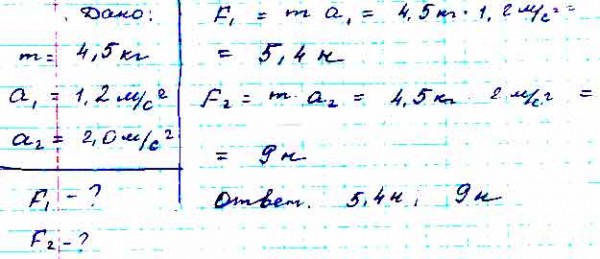 Дано:
m = 4,5 кг
a₁ = 1,2 м/с²
a₂ = 2,0 м/с²
F₁ - ?
F₂ - ?
F₁ = m a₁ = 4,5 кг · 1,2 м/с² =
= 5,4 н
F₂ = m · a₂ = 4,5 кг · 2 м/с² =
= 9 н
Ответ. 5,4 н; 9 н